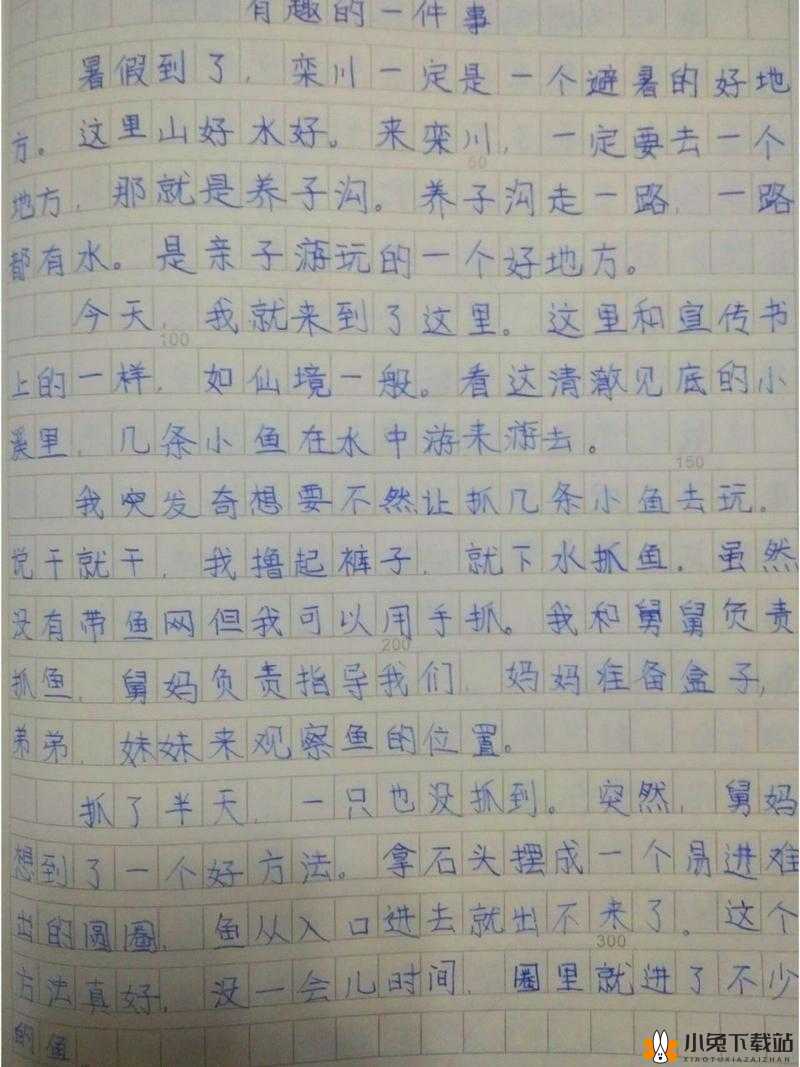 有趣的一件事
暑假到了，栾川一定是一个避暑的好地
方。这里山好水好。来栾川，一定要去一个
50
地方，那就是养子沟。养子沟走一路，一路
都有水。是亲子游玩的一个好地方。
今天，我就来到了这里。这里和宣传书
100
上的一样，如仙境一般。看这清澈见底的小
溪里，几条小鱼在水中游来游去。
150
我突发奇想要不然让抓几条小鱼去玩。
说干就干，我撸起裤子，就下水抓鱼。虽然
没有带鱼网但我可以用手抓。我和舅舅负责
200
抓鱼，舅妈负责指导我们，妈妈准备盒子，
弟弟，妹妹来观察鱼的位置。
抓了半天，一只也没抓到。突然，舅妈
想到了一个好方法。拿石头摆成一个易进难
出的圆圈，鱼从入口进去就出不来了。这个
300
方法真好，没一会儿时间，圈里就进了不少
的鱼
小兔下载站
XIAOTUXIAZAIZHAN